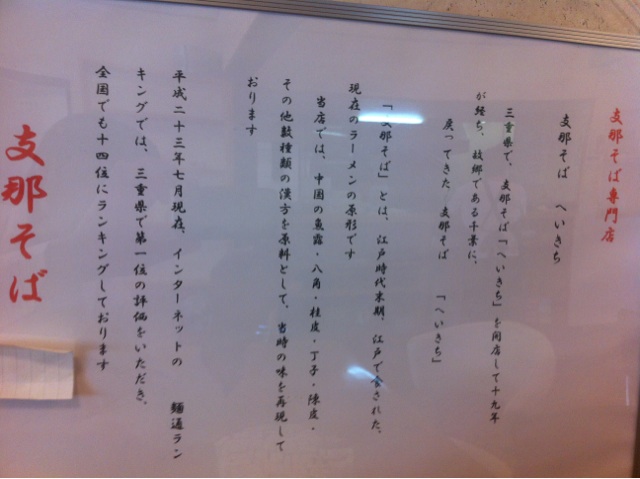 支那そば専門店
支那そば　へいきち
三重県で、支那そば「へいきち」を開店して十九年
が経ち、故郷である千葉に、
戻ってきた　支那そば　「へいきち」
「支那そば」とは、江戸時代末期、江戸で食された、
現在のラーメンの原形です
当店では、中国の魚露・八角・桂皮・丁子・陳皮・
その他数種類の漢方を原料として、当時の味を再現して
おります
平成二十三年七月現在、インターネットの　麺通ラン
キングでは、三重県で第一位の評価をいただき、
全国でも十四位にランキングしております
支那そば